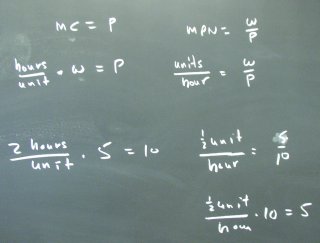 MC = P
MPN = w/P
hours/unit · w = P
units/hour = w/P
2 hours/unit · 5 = 10
½ unit/hour = 5/10
½ unit/hour · 10 = 5